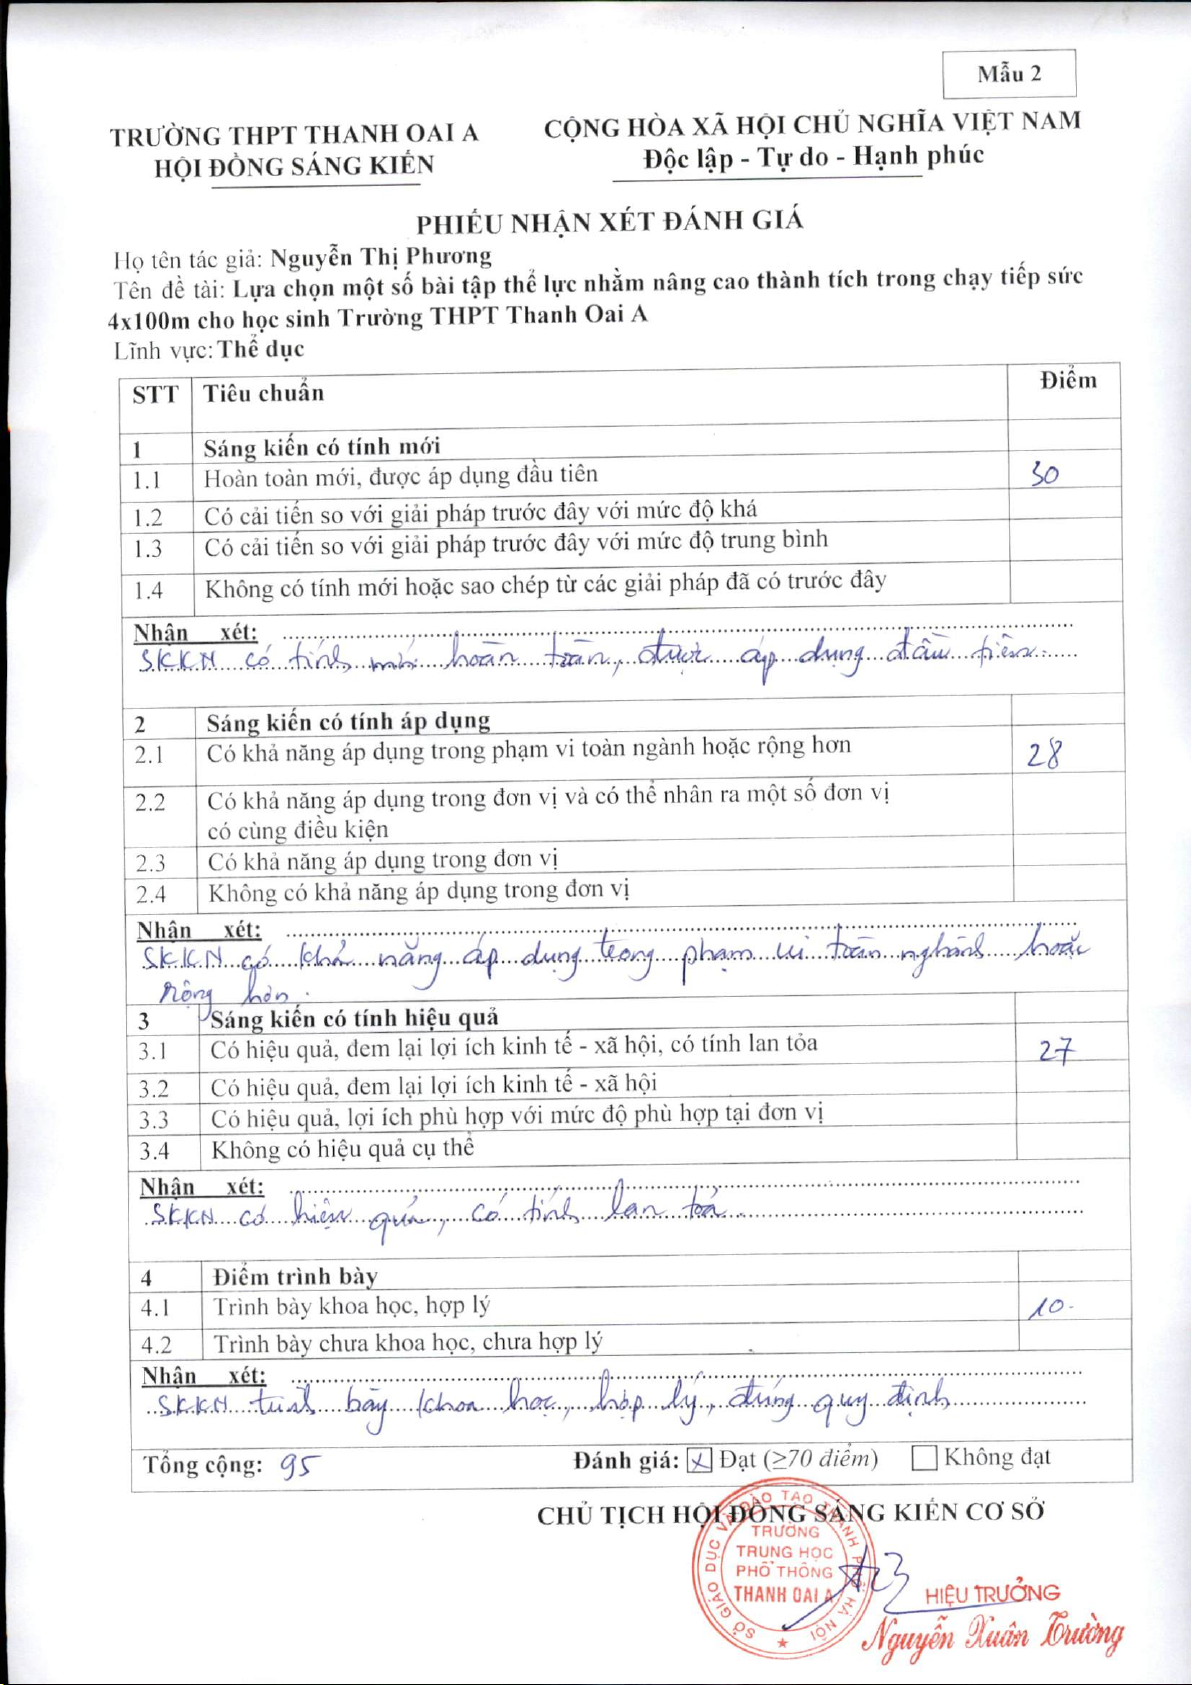 Mẫu 2
TRƯỜNG THPT THANH OAI A
HỘI ĐỒNG SÁNG KIẾN
CỘNG HÒA XÃ HỘI CHỦ NGHĨA VIỆT NAM
Độc lập - Tự do - Hạnh phúc
PHIẾU NHẬN XÉT ĐÁNH GIÁ
Họ tên tác giả: Nguyễn Thị Phương
Tên đề tài: Lựa chọn một số bài tập thể lực nhằm nâng cao thành tích trong chạy tiếp sức
4x100m cho học sinh Trường THPT Thanh Oai A
Lĩnh vực: Thể dục
STT Tiêu chuẩn Điểm
1 Sáng kiến có tính mới
1.1 Hoàn toàn mới, được áp dụng đầu tiên 30
1.2 Có cải tiến so với giải pháp trước đây với mức độ khá
1.3 Có cải tiến so với giải pháp trước đây với mức độ trung bình
1.4 Không có tính mới hoặc sao chép từ các giải pháp đã có trước đây
Nhận xét:
SKKN có tính mới hoàn toàn, được áp dụng đầu tiên.
2 Sáng kiến có tính áp dụng
2.1 Có khả năng áp dụng trong phạm vi toàn ngành hoặc rộng hơn 28
2.2 Có khả năng áp dụng trong đơn vị và có thể nhân ra một số đơn vị
có cùng điều kiện
2.3 Có khả năng áp dụng trong đơn vị
2.4 Không có khả năng áp dụng trong đơn vị
Nhận xét:
SKKN có khả năng áp dụng trong phạm vi toàn nghành hoặc
rộng hơn.
3 Sáng kiến có tính hiệu quả
3.1 Có hiệu quả, đem lại lợi ích kinh tế - xã hội, có tính lan tỏa 27
3.2 Có hiệu quả, đem lại lợi ích kinh tế - xã hội
3.3 Có hiệu quả, lợi ích phù hợp với mức độ phù hợp tại đơn vị
3.4 Không có hiệu quả cụ thể
Nhận xét:
SKKN có hiệu quả, có tính lan toả.
4 Điểm trình bày
4.1 Trình bày khoa học, hợp lý 10.
4.2 Trình bày chưa khoa học, chưa hợp lý
Nhận xét:
SKKN trình bày khoa học, hợp lý, đúng quy định
Tổng cộng: 95 Đánh giá: x Đạt (≥70 điểm) Không đạt
CHỦ TỊCH HỘI ĐỒNG SÁNG KIẾN CƠ SỞ
SỞ GIÁO DỤC VÀ ĐÀO TẠO THÀNH PHỐ HÀ NỘI
TRƯỜNG
TRUNG HỌC
PHỔ THÔNG
THANH OAI A
HIỆU TRƯỞNG
Nguyễn Xuân Trường